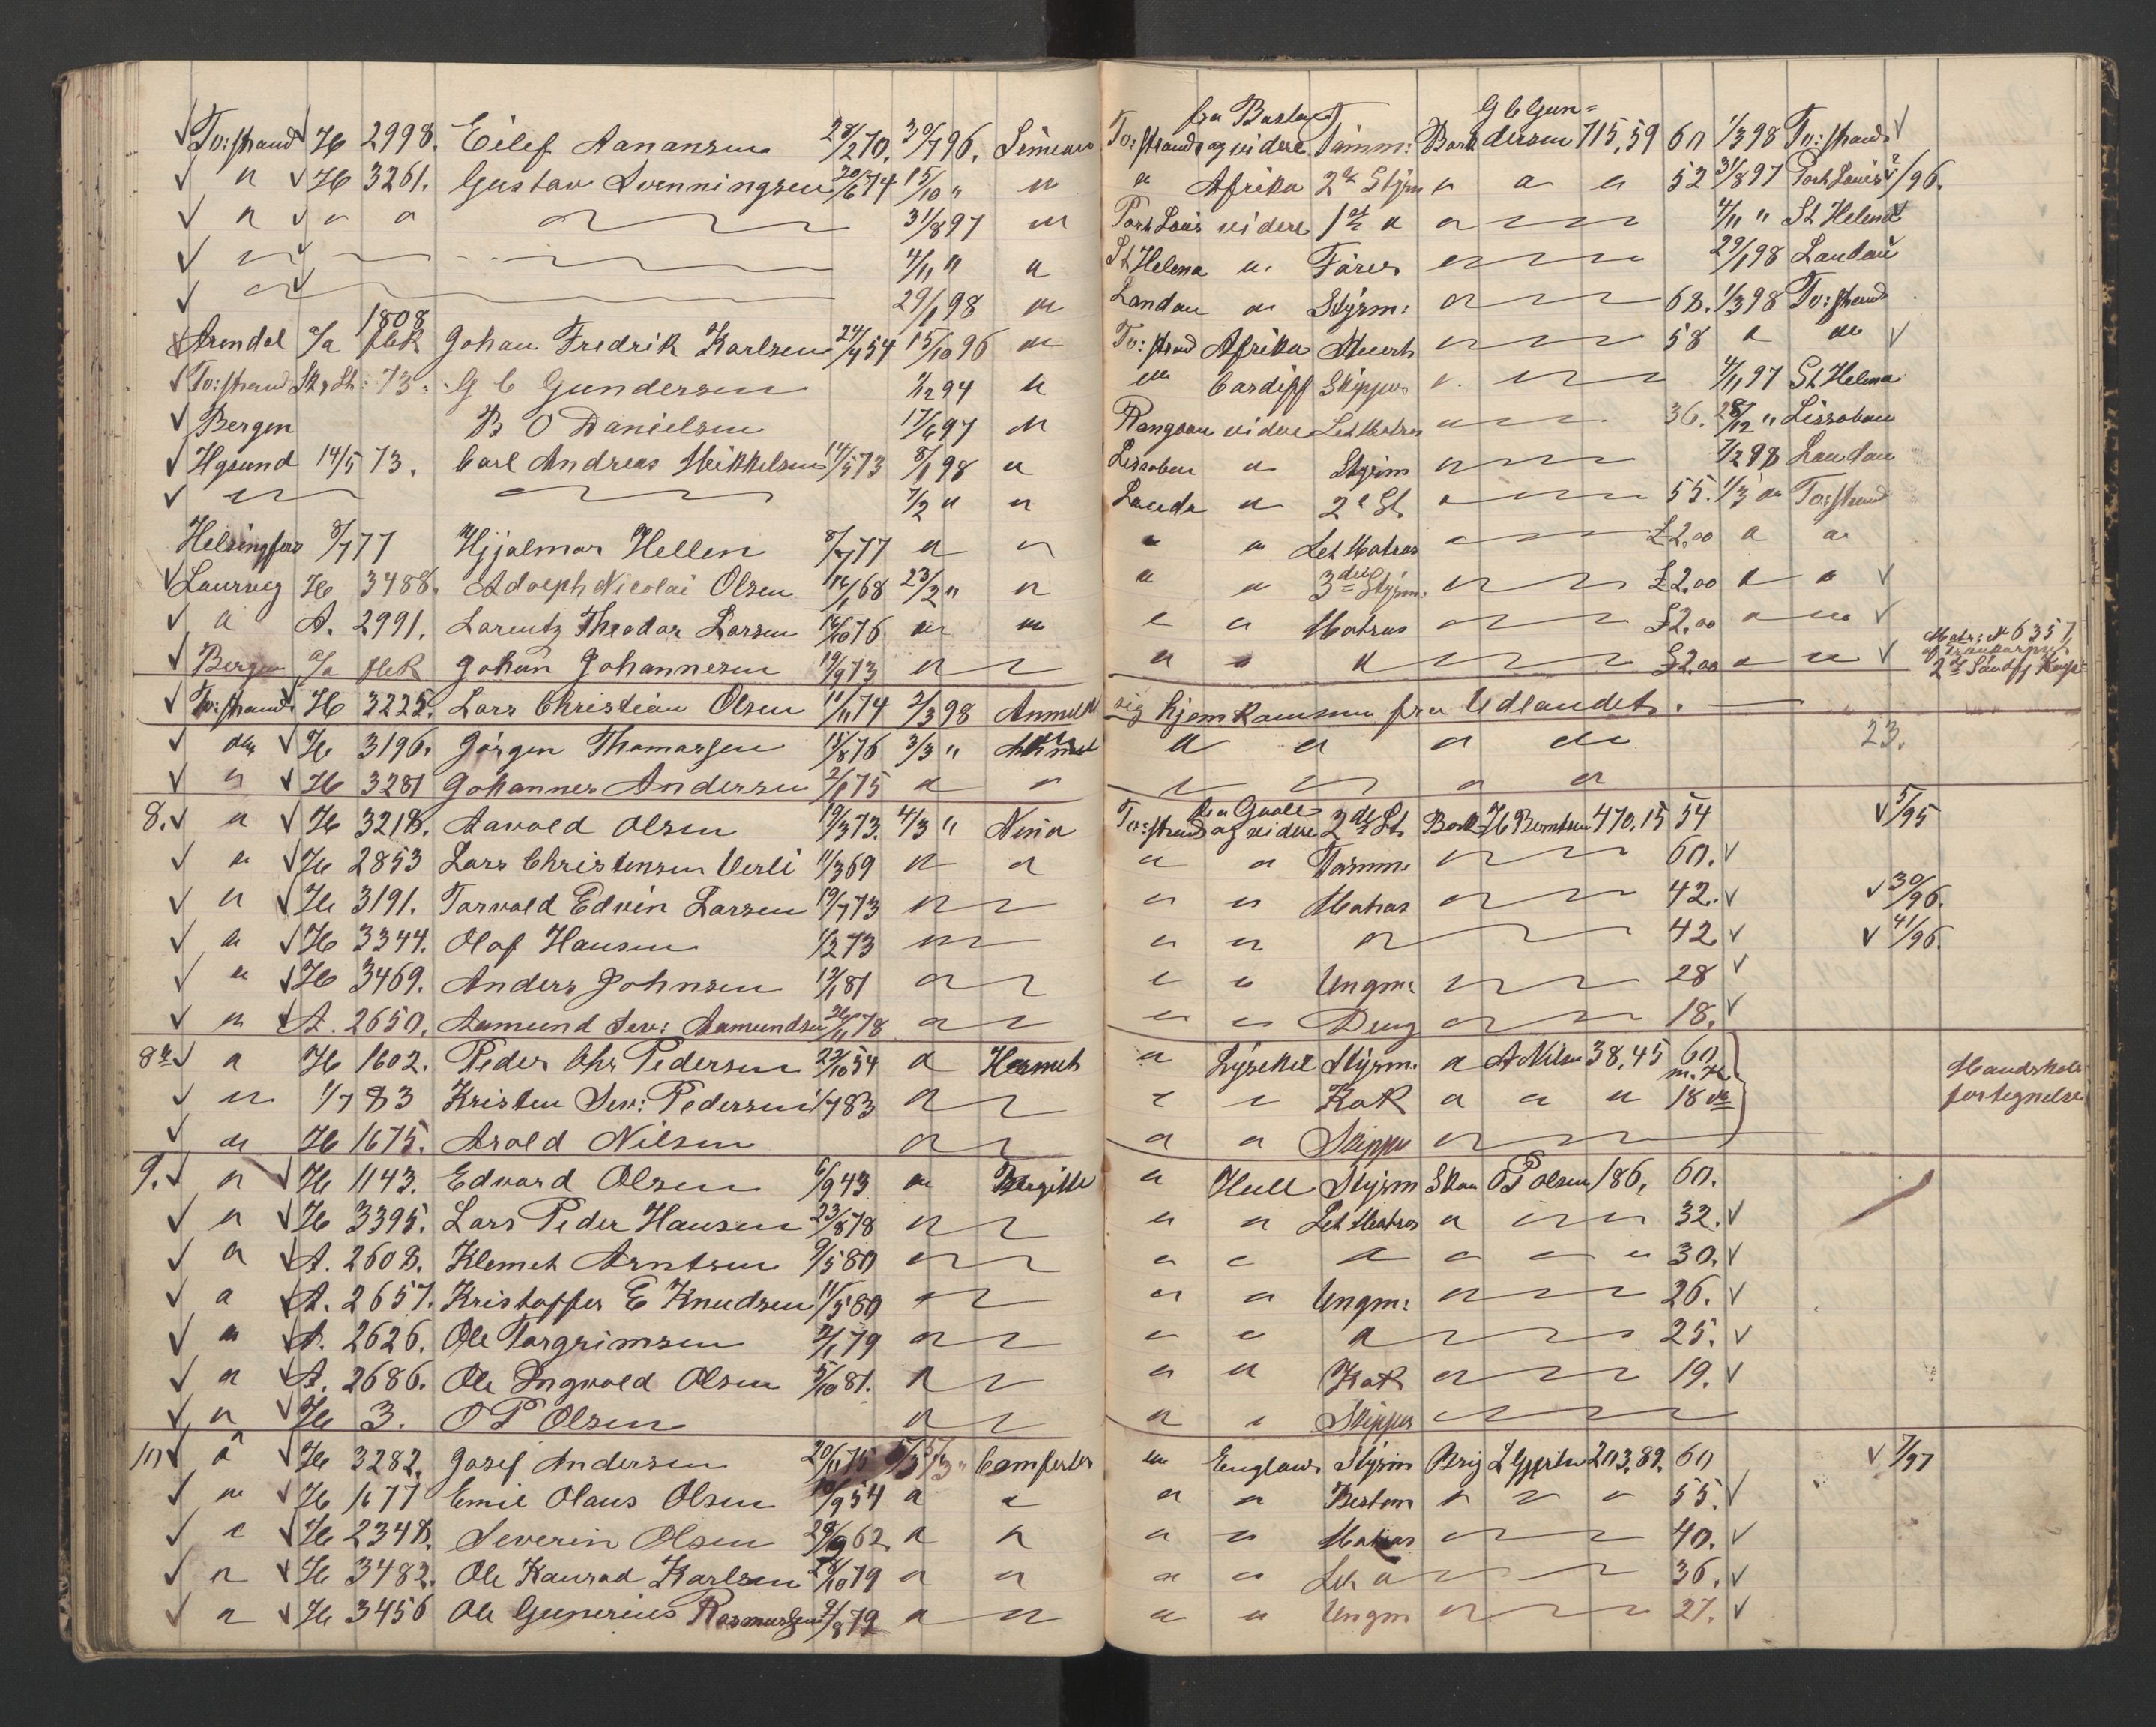 fra Bastad G C Gun=
To:strand H 2998. Eilef Aanansen 28/2 70. 30/7 96. Simeon To:strand og videre Tømm: Bark dersen 715,59 60 1/3 98 To:strand
" H 3261. Gustav Svenningsen 20/6 74 15/10 " " " Afrika 2d Styrm " " " 52 31/8 97 Port Louis 2/96.
" " " 31/8 97 " Port Louis videre 1st " " 4/11 " St Helena
4/11 " " St Helena " Fører " 29/1 98 Landau
29/1 98 " Landau " Styrm: " 68. 1/3 98 To:strand
1808
Arendal a/a flek Johan Fredrik Karlsen 24/4 54 15/10 96 " To:strand Afrika Stuert " 58 " "
To:strand Sk.St: 73. G C Gundersen 1/12 94 " " Cardiff Skipper " 4/11 97 St Helena
Bergen B O Danielsen 17/6 97 " Rangoon videre Let Matros " 36. 28/12 " Lissabon
Hgsund 14/5 73. Carl Andreas Mikkelsen 14/5 73 8/1 98 " Lissabon " Styrm " 7/2 98 Landau
" " 7/2 " " Landa " 2d St. " 55. 1/3 " To:strand
Helsingfors 8/7 77 Hjjalmar Hellen 8/7 77 " " " " Let Matros " £2.00 " "
Laurvig H 3488. Adolph Nicolai Olsen 16/1 68 23/2 " " " " 3die Styrm: " £2.00 " "
" A. 2991. Larentz Theodor Larsen 16/10 76 " " " " Matros " £2.00 " "
Bergen a/a flek Johan Johannesen 19/9 73 " " " " " £2.00 " " Matr: N 6357,
To:strand H 3225. Lars Christian Olsen 11/11 74 2/3 98 Anmeldt sig hjemkommen fra Udlandet.
do H 3196. Jörgen Thomassen 15/8 76 3/3 " Anmeldt " " " " 23.
" H 3281 Johannes Andersen 2/1 75 " " " " " "
8. " H 3218. Aavold Olsen 19/3 73. 4/3 " Nina To:strand og videre 2de St. Bark H Berntsen 470,15 54 5/95
" H 2853 Lars Christensen Verli 11/3 69 " " " " Tømm: " 60.
" H 3191. Torvald Edvin Larsen 19/7 73 " " " Matros " 42. 30/96.
" H 3344. Olaf Hansen 1/2 73 " " " " 42 41/96.
" H 3469. Anders Johnsen 12/1 81 " " " Ungm: " 28
" A. 2650. Aamund Sev: Aamundsen 26/11 78 " " " Dreng " 18.
8a " H 1602. Peder Chr Pedersen 22/10 54 " Hermet " Lysekil Styrm. " A Nilsen 38,45 60 Mandskabs
m. H.
" 1/7 83 Kristen Sev: Pedersen 1/7 83 " " " Kok " " " 18 do fortegnelse
" H 1675. Arold Nilsen " " " Skipper "
9. " H 1143. Edvard Olsen 6/9 43 " Birgitte " Hull Styrm Skon O P Olsen 186, 60.
" H 3395. Lars Peder Hansen 23/8 78 " " " Let Matros " " 32.
" A. 2608. Klemet Arntsen 9/5 80 " " " " " " " 30.
" A. 2657. Kristoffer E Knudsen 11/5 80 " " " Ungm: " 26.
" A. 2626. Ole Torgrimsen 2/1 79 " " " " 25.
" A. 2686. Ole Ingvald Olsen 5/10 81. " " " Kok " 19.
" H 3. O P Olsen " " " Skipper "
10 " H 3282. Josef Andersen 20/11 75 5/3 " Comforter " England Styrm Brig L Gjertsen 203,89. 60 7/97
" H 1677 Emil Olaus Olsen 10/9 54 " " " " Bestm " " " 55.
" H 2348. Severin Olsen 28/9 62 " " " " Matros " 40.
" H 3482. Ole Kanrad Karlsen 28/10 79 " " " " Let " " 36.
" H 3456 Ole Gunerius Rasmussen 2/8 79 " " " " Ungm " 27.